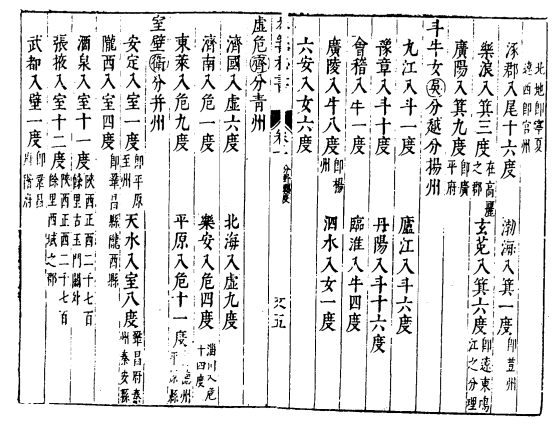 北地即寧夏
遼西即營州
涿郡入尾十六度　渤海入箕一度即薊州
樂浪入箕三度在高麗之郡　玄菟入箕六度即遼東鳴江之分理
廣陽入箕九度即廣平府
斗牛女吳分越分揚州
九江入斗一度　廬江入斗六度
豫章入斗十度　丹陽入斗十六度
會稽入牛一度　臨淮入牛四度
廣陵入牛八度即楊州　泗水入女一度
六安入女六度
卷一　分野躔度
五
虛危齊分青州
濟國入虛六度　北海入虛九度
濟南入危一度　樂安入危四度淄川入危十四度
東萊入危九度　平原入危十一度
室壁衛分并州
安定入室一度即平原至州　天水入室八度鞏昌府秦州秦安縣
隴西入室四度即鞏昌縣隴西縣
酒泉入室十一度陝西正西二千七百餘里古玉門關外
張掖入室十二度陝西正西二千七百餘里西域之郡
武都入壁一度即鞏昌府階府